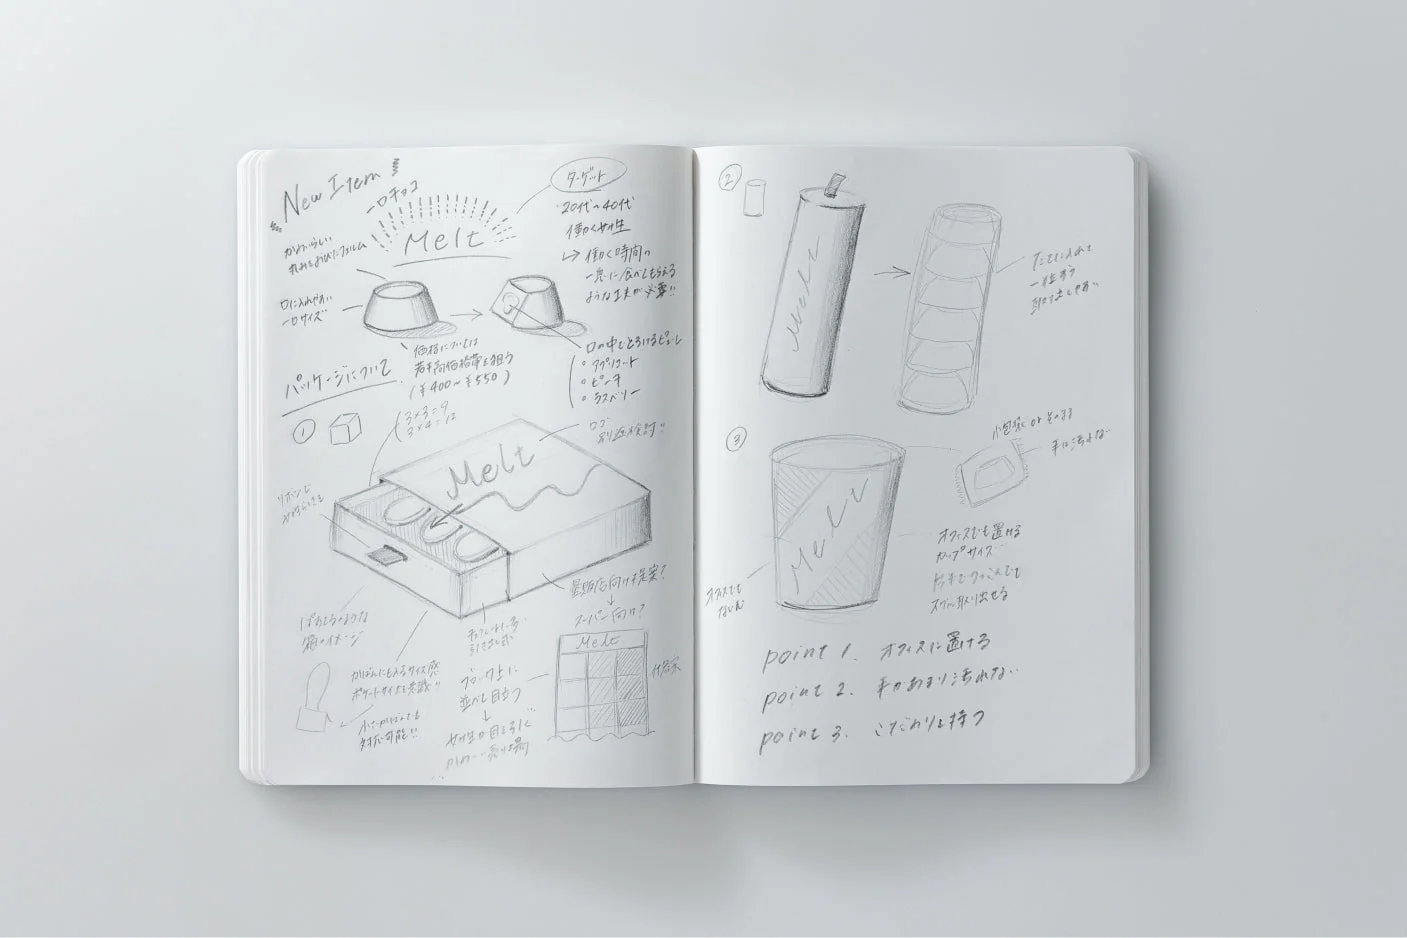 New Item
一口チョコ
Melt
かわいらしい
丸みをおびたフォルム
口に入れやすい
一口サイズ
ターゲット
20代〜40代
働く女性
↳ 働く時間の
に食べてもらえる
ような工夫が必要!!
価格については
若干高価格帯を狙う
(¥400〜¥550)
口の中でとろけるピューレ
・アプリコット
・ピーチ
・ラズベリー
パッケージについて
①
3×3=9
3×4=12
ロゴ
別途検討!!
Melt
リボンで
量販店向け提案?
↓
スーパー向け?
箱のイメージ
かばんに入るサイズ感
ポケットサイズを意識!!
小さいかばんでも
対応可能!!
引き出し式
ブロック上に
並べて目立つ
↓
女性の目を引く
かわいい売り場
Melt
什器案
②
Melt
たてに入れて
一粒ずつ
取り出しやすい
③
Melt
小包装 or そのまま
手に汚れない
オフィスでも置ける
カップサイズ
片手でつっこんでも
スグに取り出せる
オフィスでも
point 1. オフィスに置ける
point 2. 手があまり汚れない
point 3. こだわりを持つ